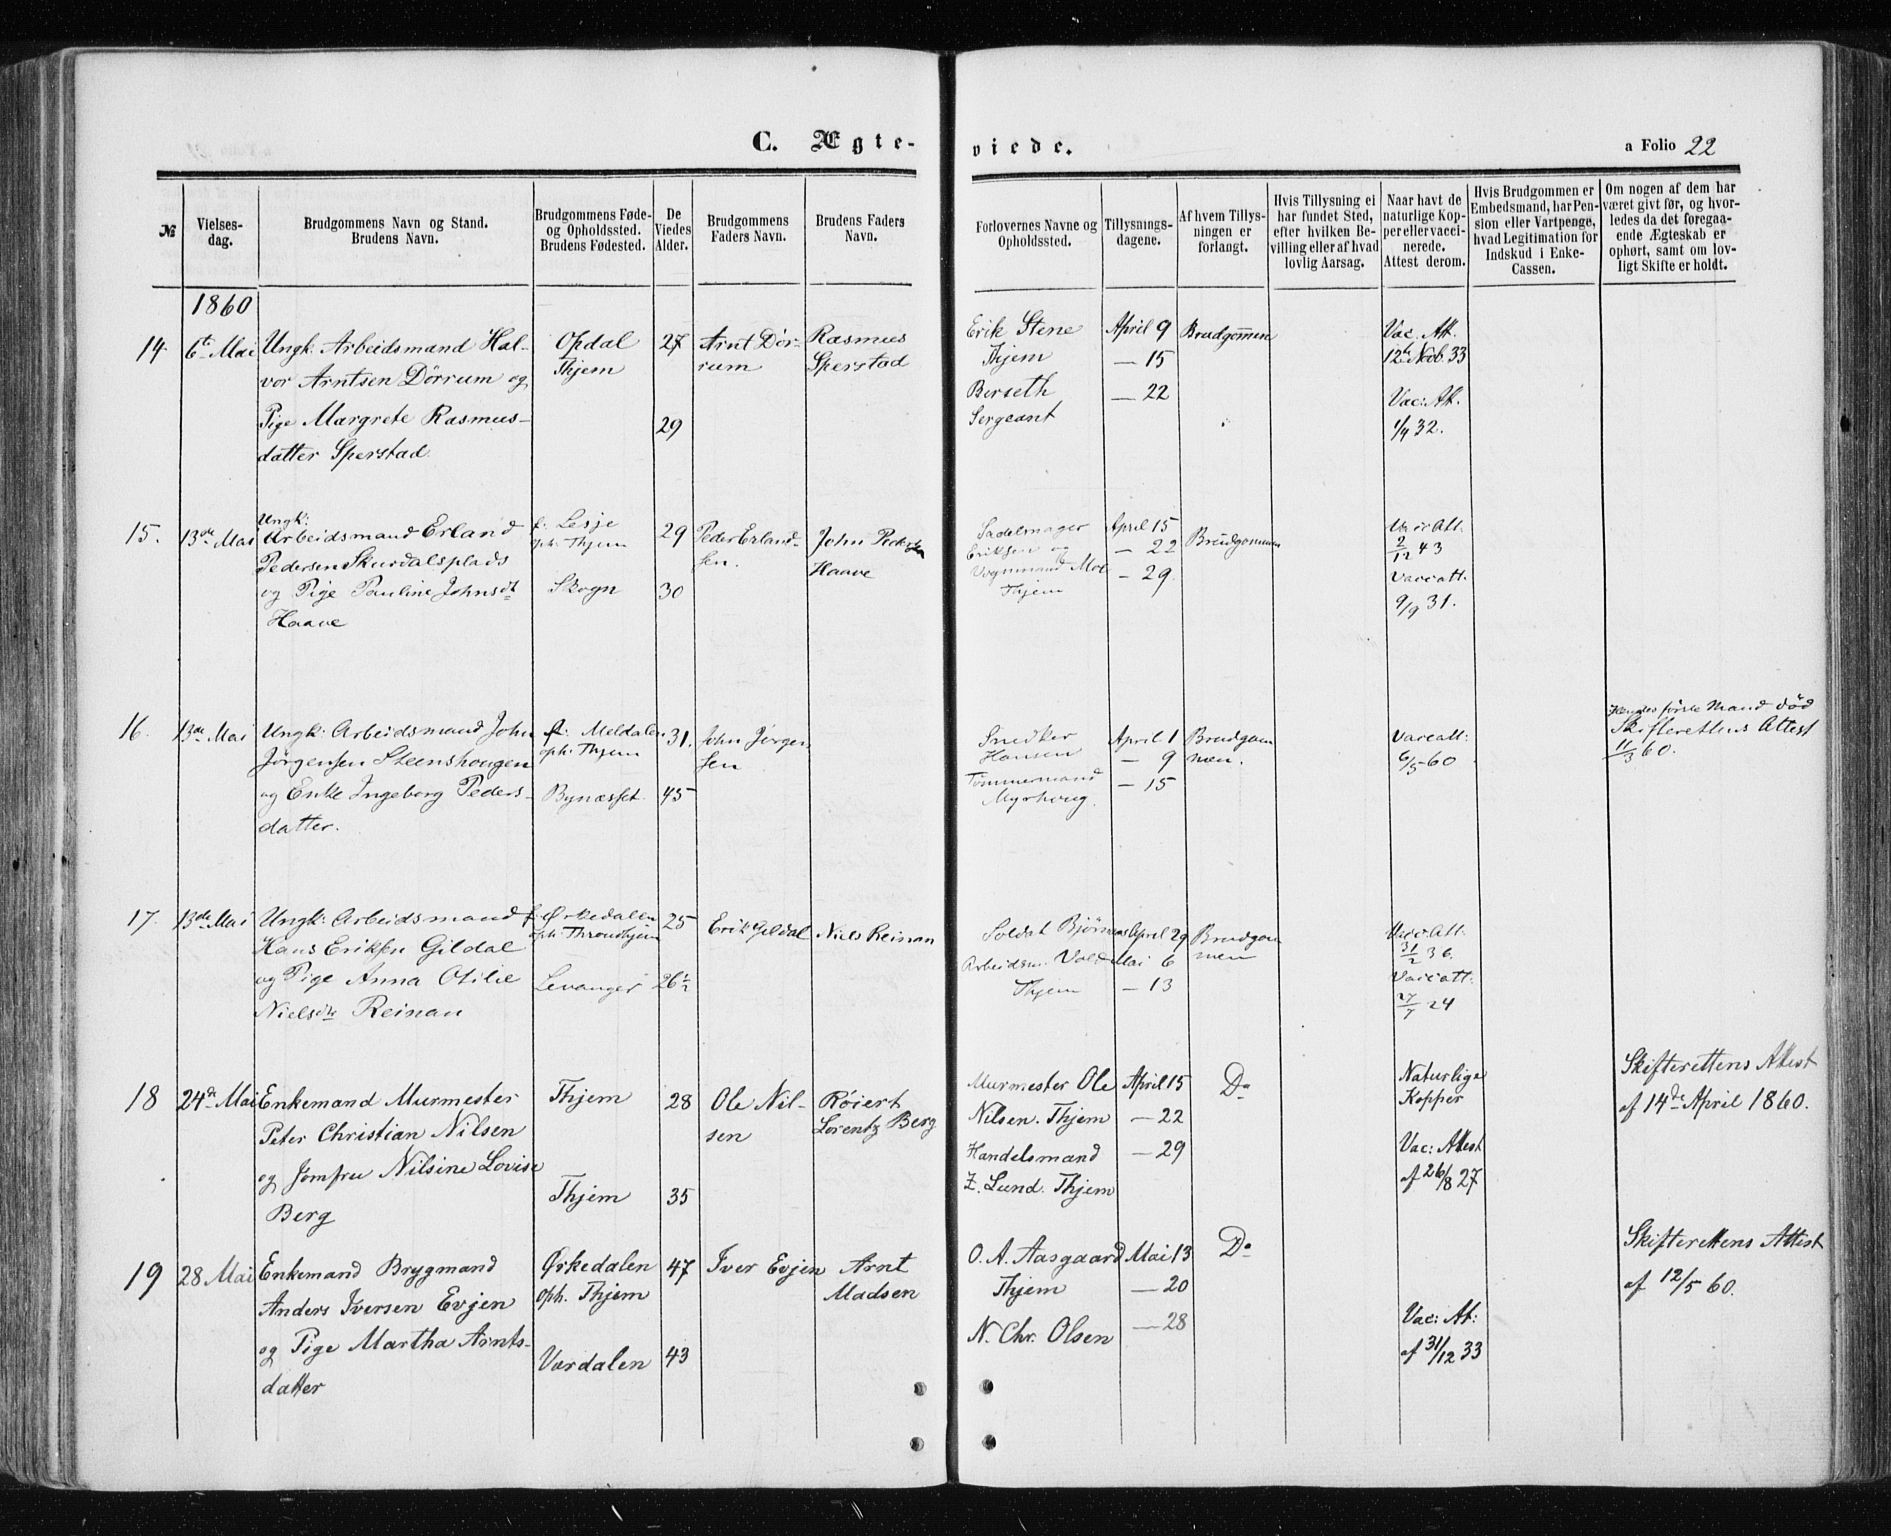 C. Ægte-
viede.
a Folio 22
№
Vielses-
dag.
Brudgommens Navn og Stand.
Brudens Navn.
Brudgommens Føde-
og Opholdssted.
Brudens Fødested.
De
Viedes
Alder.
Brudgommens
Faders Navn.
Brudens Faders
Navn.
Forlovernes Navne og
Opholdssted.
Tillysnings-
dagene.
Af hvem Tillys-
ningen er
forlangt.
Hvis Tillysning ei
har fundet Sted,
efter hvilken Be-
villing eller af hvad
lovlig Aarsag.
Naar havt de
naturlige Kop-
per eller vacci-
nerede.
Attest derom.
Hvis Brudgommen er
Embedsmand, har Pen-
sion eller Vartpenge,
hvad Legitimation for
Indskud i Enke-
Cassen.
Om nogen af dem har
været givt før, og hvor-
ledes da det foregaa-
ende Ægteskab er
ophørt, samt om lov-
ligt Skifte er holdt.
1860
14.
6te Mai
Ungk. Arbeidsmand Hal-
vor Arntsen Dörrum og
Pige Margrete Rasmus-
datter Sperstad.
Opdal
Thjem
27
29
Arnt Dör-
rum
Rasmus
Sperstad
Erik Stene
Thjem
Berseth
Sergeant
April 9
— 15
— 22
Brudgommen
Vac. Att.
12te Novb. 33
Vac: Att.
1/9 32.
15.
13de Mai
Ungk:
Arbeidsmand Erland
Pedersen Skurdalsplads
og Pige Pauline Johnsdt
Haave
f. Lesje
oph. Thjem
Skogn
29
30
Peder Erland-
sen.
John Peder
Haave
Sadelmager
Eriksen og
Vognmand Moe
Thjem
April 15
— 22
— 29.
Brudgommen
Vacc Att.
2/12 43
Vaccatt.
9/9 31.
16.
13de Mai
Ungk: Arbeidsmand John
Jörgensen Steenshougen
og Enke Ingeborg Peders-
datter.
f. Meldalen
oph. Thjem
Bynæsset.
31.
45
John Jörgen-
sen
Snedker
Hansen
Tømmermand
Myrhoug.
April 1
— 9
— 15
Brudgom
men.
Vaccatt:
6/5 60
Hendes første Mand död
Skifterettens Attest
11/3 60.
17.
13de Mai
Ungk: Arbeidsmand
Hans Eriksen Gildal
og Pige Anna Otilie
Nielsdtr Reinan
f. Ørkedalen
oph. Throndhjem
Levanger
25
26 1/2
Erik Gildal
Niels Reinan
Soldat Bjørnaas
Arbeidsm. Vold
Thjem
April 29
Mai 6
— 13
Brudgom
men
Vacc Att.
31/2 36.
Vaccatt.
27/7 24
18
24de Mai
Enkemand Murmester
Peter Christian Nilsen
og Jomfru Nilsine Lovise
Berg
Thjem
Thjem
28
35
Ole Nil-
sen
Röiert
Lorentz Berg
Murmester Ole
Nilsen. Thjem
Handelsmand
Z. Lund. Thjem
April 15
— 22
— 29
Do
Naturlige
Kopper
Vac: Attest
af 26/8 27
Skifterettens Attest
af 14de April 1860.
19
28 Mai
Enkemand Brygmand
Anders Iversen Evjen
og Pige Martha Arnts-
datter
Ørkedalen
oph. Thjem
Værdalen
47
43
Iver Evjen
Arnt
Madsen
O. A. Aasgaard
Thjem
N. Chr. Olsen
Mai 13
— 20
— 28
Do
Vac: At:
af 31/12 33
Skifterettens Attest
af 12/5 60.